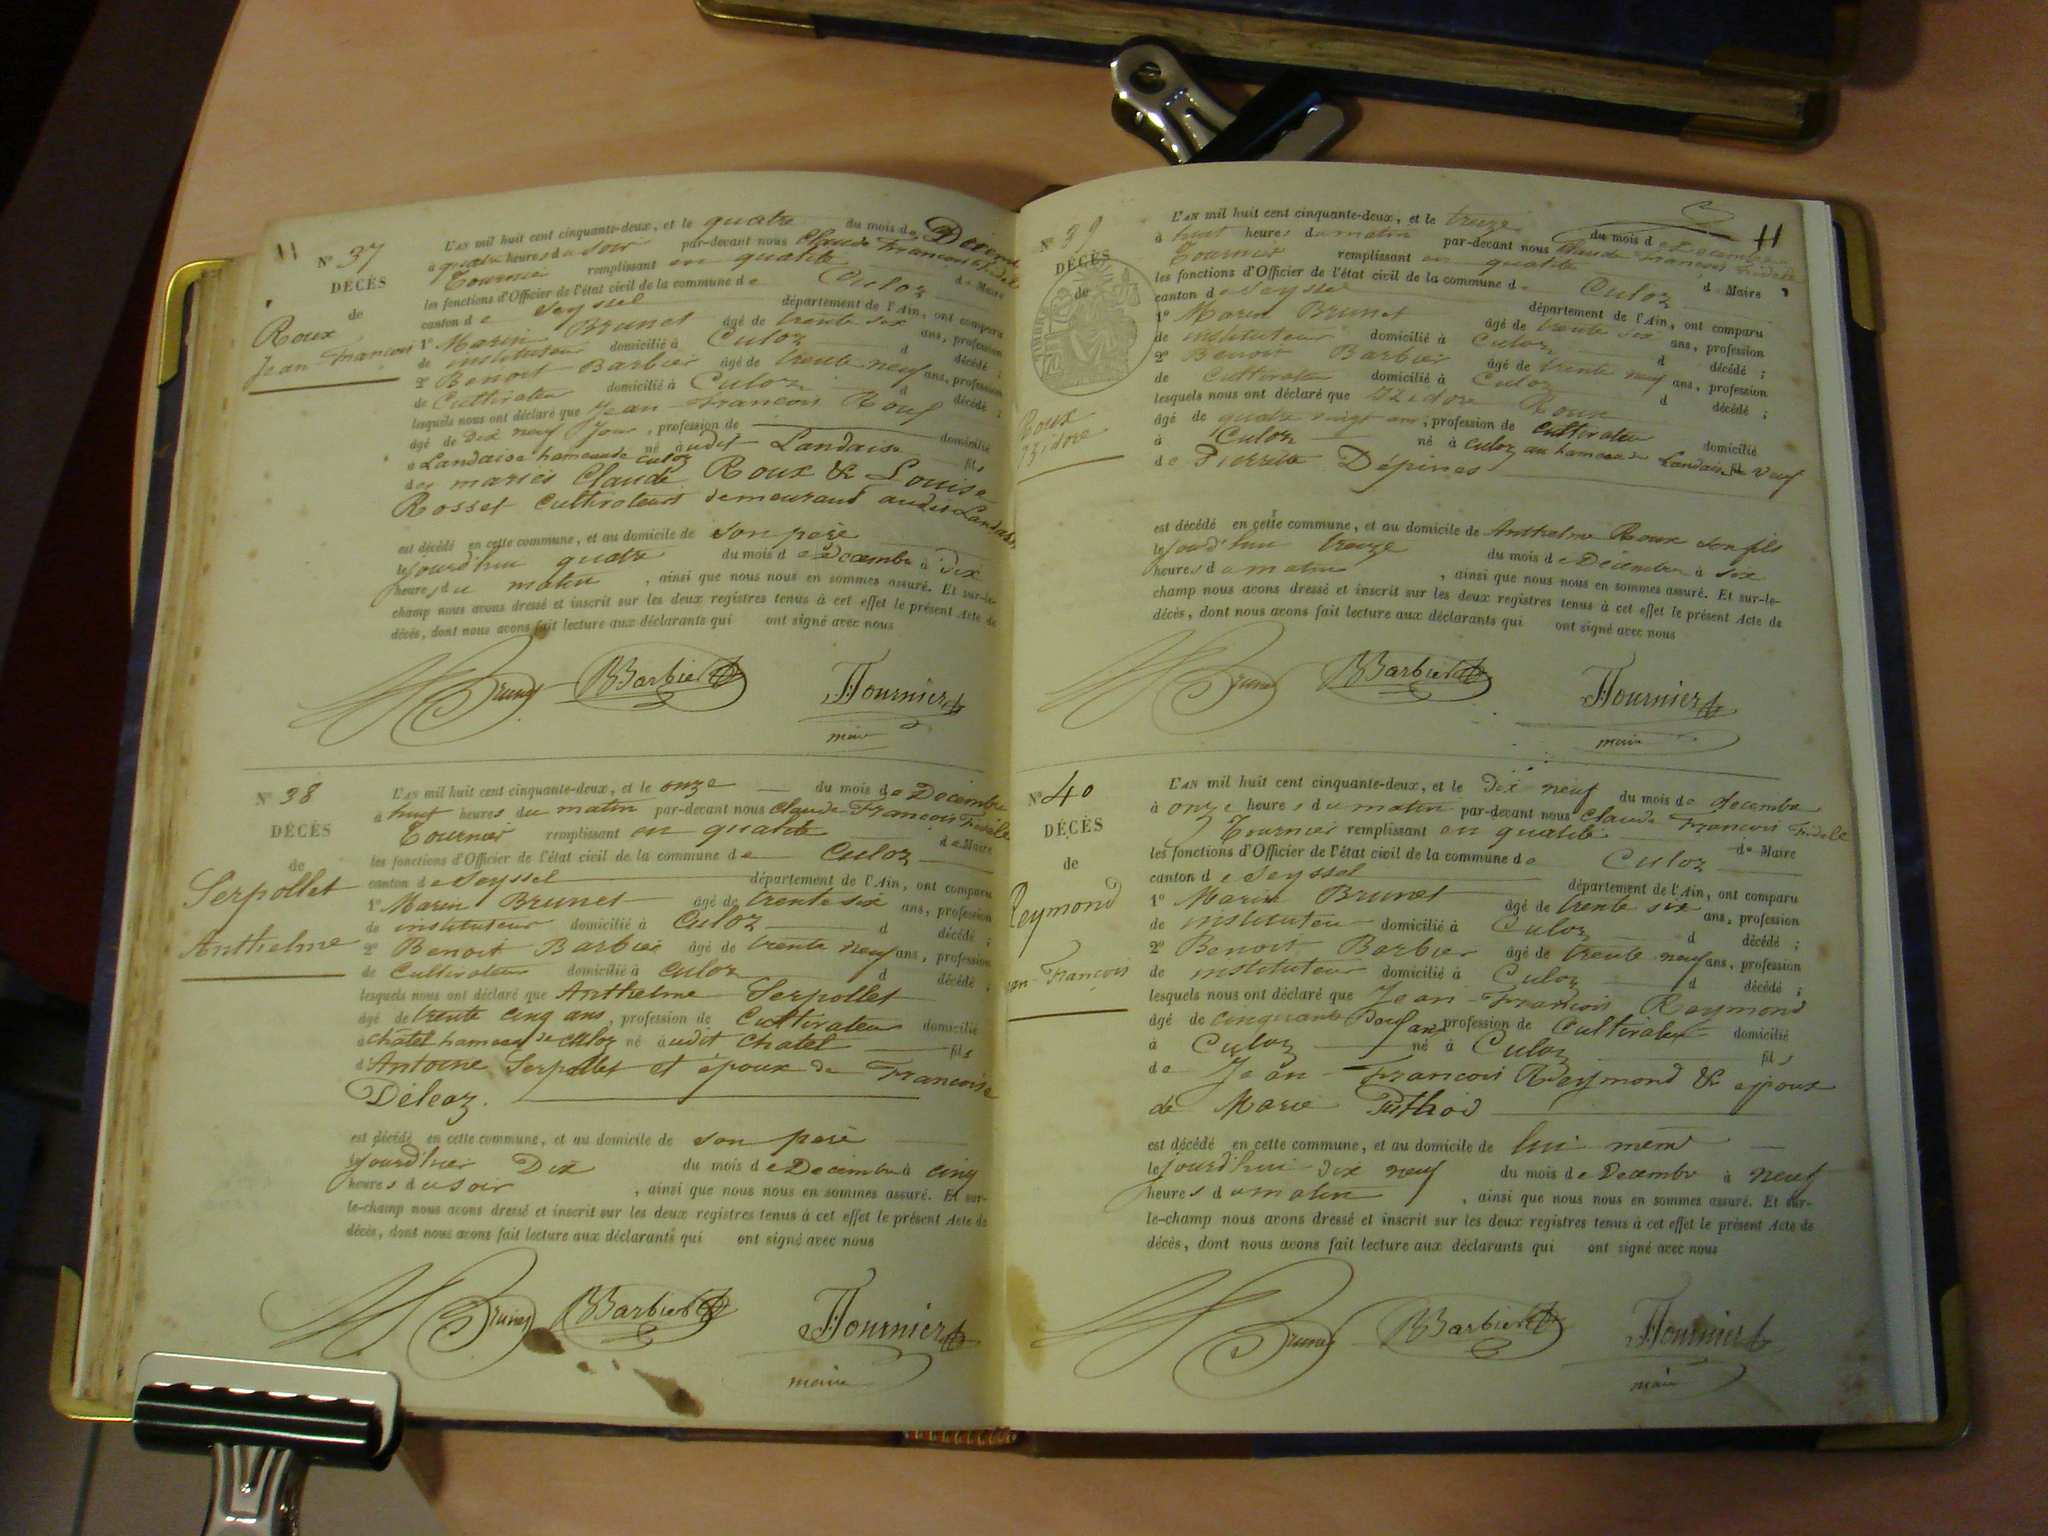 11
N° 37
DÉCÈS
de
Roux
Jean-François
L'AN mil huit cent cinquante-deux, et le quatre du mois de
à quatre heures du soir par-devant nous Claude François Fidele
Tournier remplissant en qualité de Maire
les fonctions d'Officier de l'état civil de la commune de Culoz
canton de Seyssel département de l'Ain, ont comparu
1° Marin Brunet âgé de trente six ans, profession
de instituteur domicilié à Culoz d décédé ;
2° Benoit Barbier âgé de trente neuf ans, profession
de Cultivateur domicilié à Culoz d décédé ;
lesquels nous ont déclaré que Jean-François Roux
âgé de Dix neuf Jour, profession de domicilié
à Landaise hameau de Culoz né audit Landaise fils
des mariés Claude Roux & Louise
Rosset Cultivateurs demeurant audit Landaise
est décédé en cette commune, et au domicile de son père
le jourd'hui quatre du mois de Décembre à Dix
heures du matin, ainsi que nous nous en sommes assuré. Et sur-le-
champ nous avons dressé et inscrit sur les deux registres tenus à cet effet le présent Acte de
décès, dont nous avons fait lecture aux déclarants qui ont signé avec nous
Brunet BBarbier Tournier
maire
N° 38
DÉCÈS
de
Serpollet
Anthelme
L'AN mil huit cent cinquante-deux, et le onze du mois de Décembre
à huit heures du matin par-devant nous Claude François Fidele
Tournier remplissant en qualité de Maire
les fonctions d'Officier de l'état civil de la commune de Culoz
canton de Seyssel département de l'Ain, ont comparu
1° Marin Brunet âgé de trente six ans, profession
de instituteur domicilié à Culoz d décédé ;
2° Benoit Barbier âgé de trente neuf ans, profession
de Cultivateur domicilié à Culoz d décédé ;
lesquels nous ont déclaré que Anthelme Serpollet
âgé de trente cinq ans, profession de Cultivateur domicilié
à châtel hameau de Culoz né audit chatel fils
d'Antoine Serpollet et époux de Françoise
Déleaz.
est décédé en cette commune, et au domicile de son père
le jourd'hier Dix du mois de Décembre à cinq
heures du soir, ainsi que nous nous en sommes assuré. Et sur-
le-champ nous avons dressé et inscrit sur les deux registres tenus à cet effet le présent Acte de
décès, dont nous avons fait lecture aux déclarants qui ont signé avec nous
Brunet BBarbier Tournier
maire
11
N° 39
DÉCÈS
de
Roux
Izidore
L'AN mil huit cent cinquante-deux, et le treize du mois de Décembre
à huit heures du matin par-devant nous Claude François Fidele
Tournier remplissant en qualité de Maire
les fonctions d'Officier de l'état civil de la commune de Culoz
canton de Seyssel département de l'Ain, ont comparu
1° Marin Brunet âgé de trente six ans, profession
de instituteur domicilié à Culoz d décédé ;
2° Benoit Barbier âgé de trente neuf ans, profession
de Cultivateur domicilié à Culoz d décédé ;
lesquels nous ont déclaré que Izidore Roux
âgé de quatre vingt ans, profession de cultivateur domicilié
à Culoz né à Culoz au hameau de Landaise veuf
de Pierrette Dépines
est décédé en cette commune, et au domicile de Anthelme Roux son fils
le jourd'hui treize du mois de Décembre à six
heures du matin, ainsi que nous nous en sommes assuré. Et sur-le-
champ nous avons dressé et inscrit sur les deux registres tenus à cet effet le présent Acte de
décès, dont nous avons fait lecture aux déclarants qui ont signé avec nous
Brunet BBarbier Tournier
maire
N° 40
DÉCÈS
de
Reymond
Jean-François
L'AN mil huit cent cinquante-deux, et le dix neuf du mois de décembre
à onze heures du matin par-devant nous Claude François Fidele
Tournier remplissant en qualité de Maire
les fonctions d'Officier de l'état civil de la commune de Culoz
canton de Seyssel département de l'Ain, ont comparu
1° Marin Brunet âgé de trente six ans, profession
de instituteur domicilié à Culoz d décédé ;
2° Benoit Barbier âgé de trente neuf ans, profession
de instituteur domicilié à Culoz d décédé ;
lesquels nous ont déclaré que Jean-François Reymond
âgé de cinquante neuf ans profession de Cultivateur domicilié
à Culoz né à Culoz fils
de Jean-François Reymond & époux
de Marie Puthod
est décédé en cette commune, et au domicile de lui même
le jourd'hui dix neuf du mois de Décembre à neuf
heures du matin, ainsi que nous nous en sommes assuré. Et sur-
le-champ nous avons dressé et inscrit sur les deux registres tenus à cet effet le présent Acte de
décès, dont nous avons fait lecture aux déclarants qui ont signé avec nous
Brunet BBarbier Tournier
maire